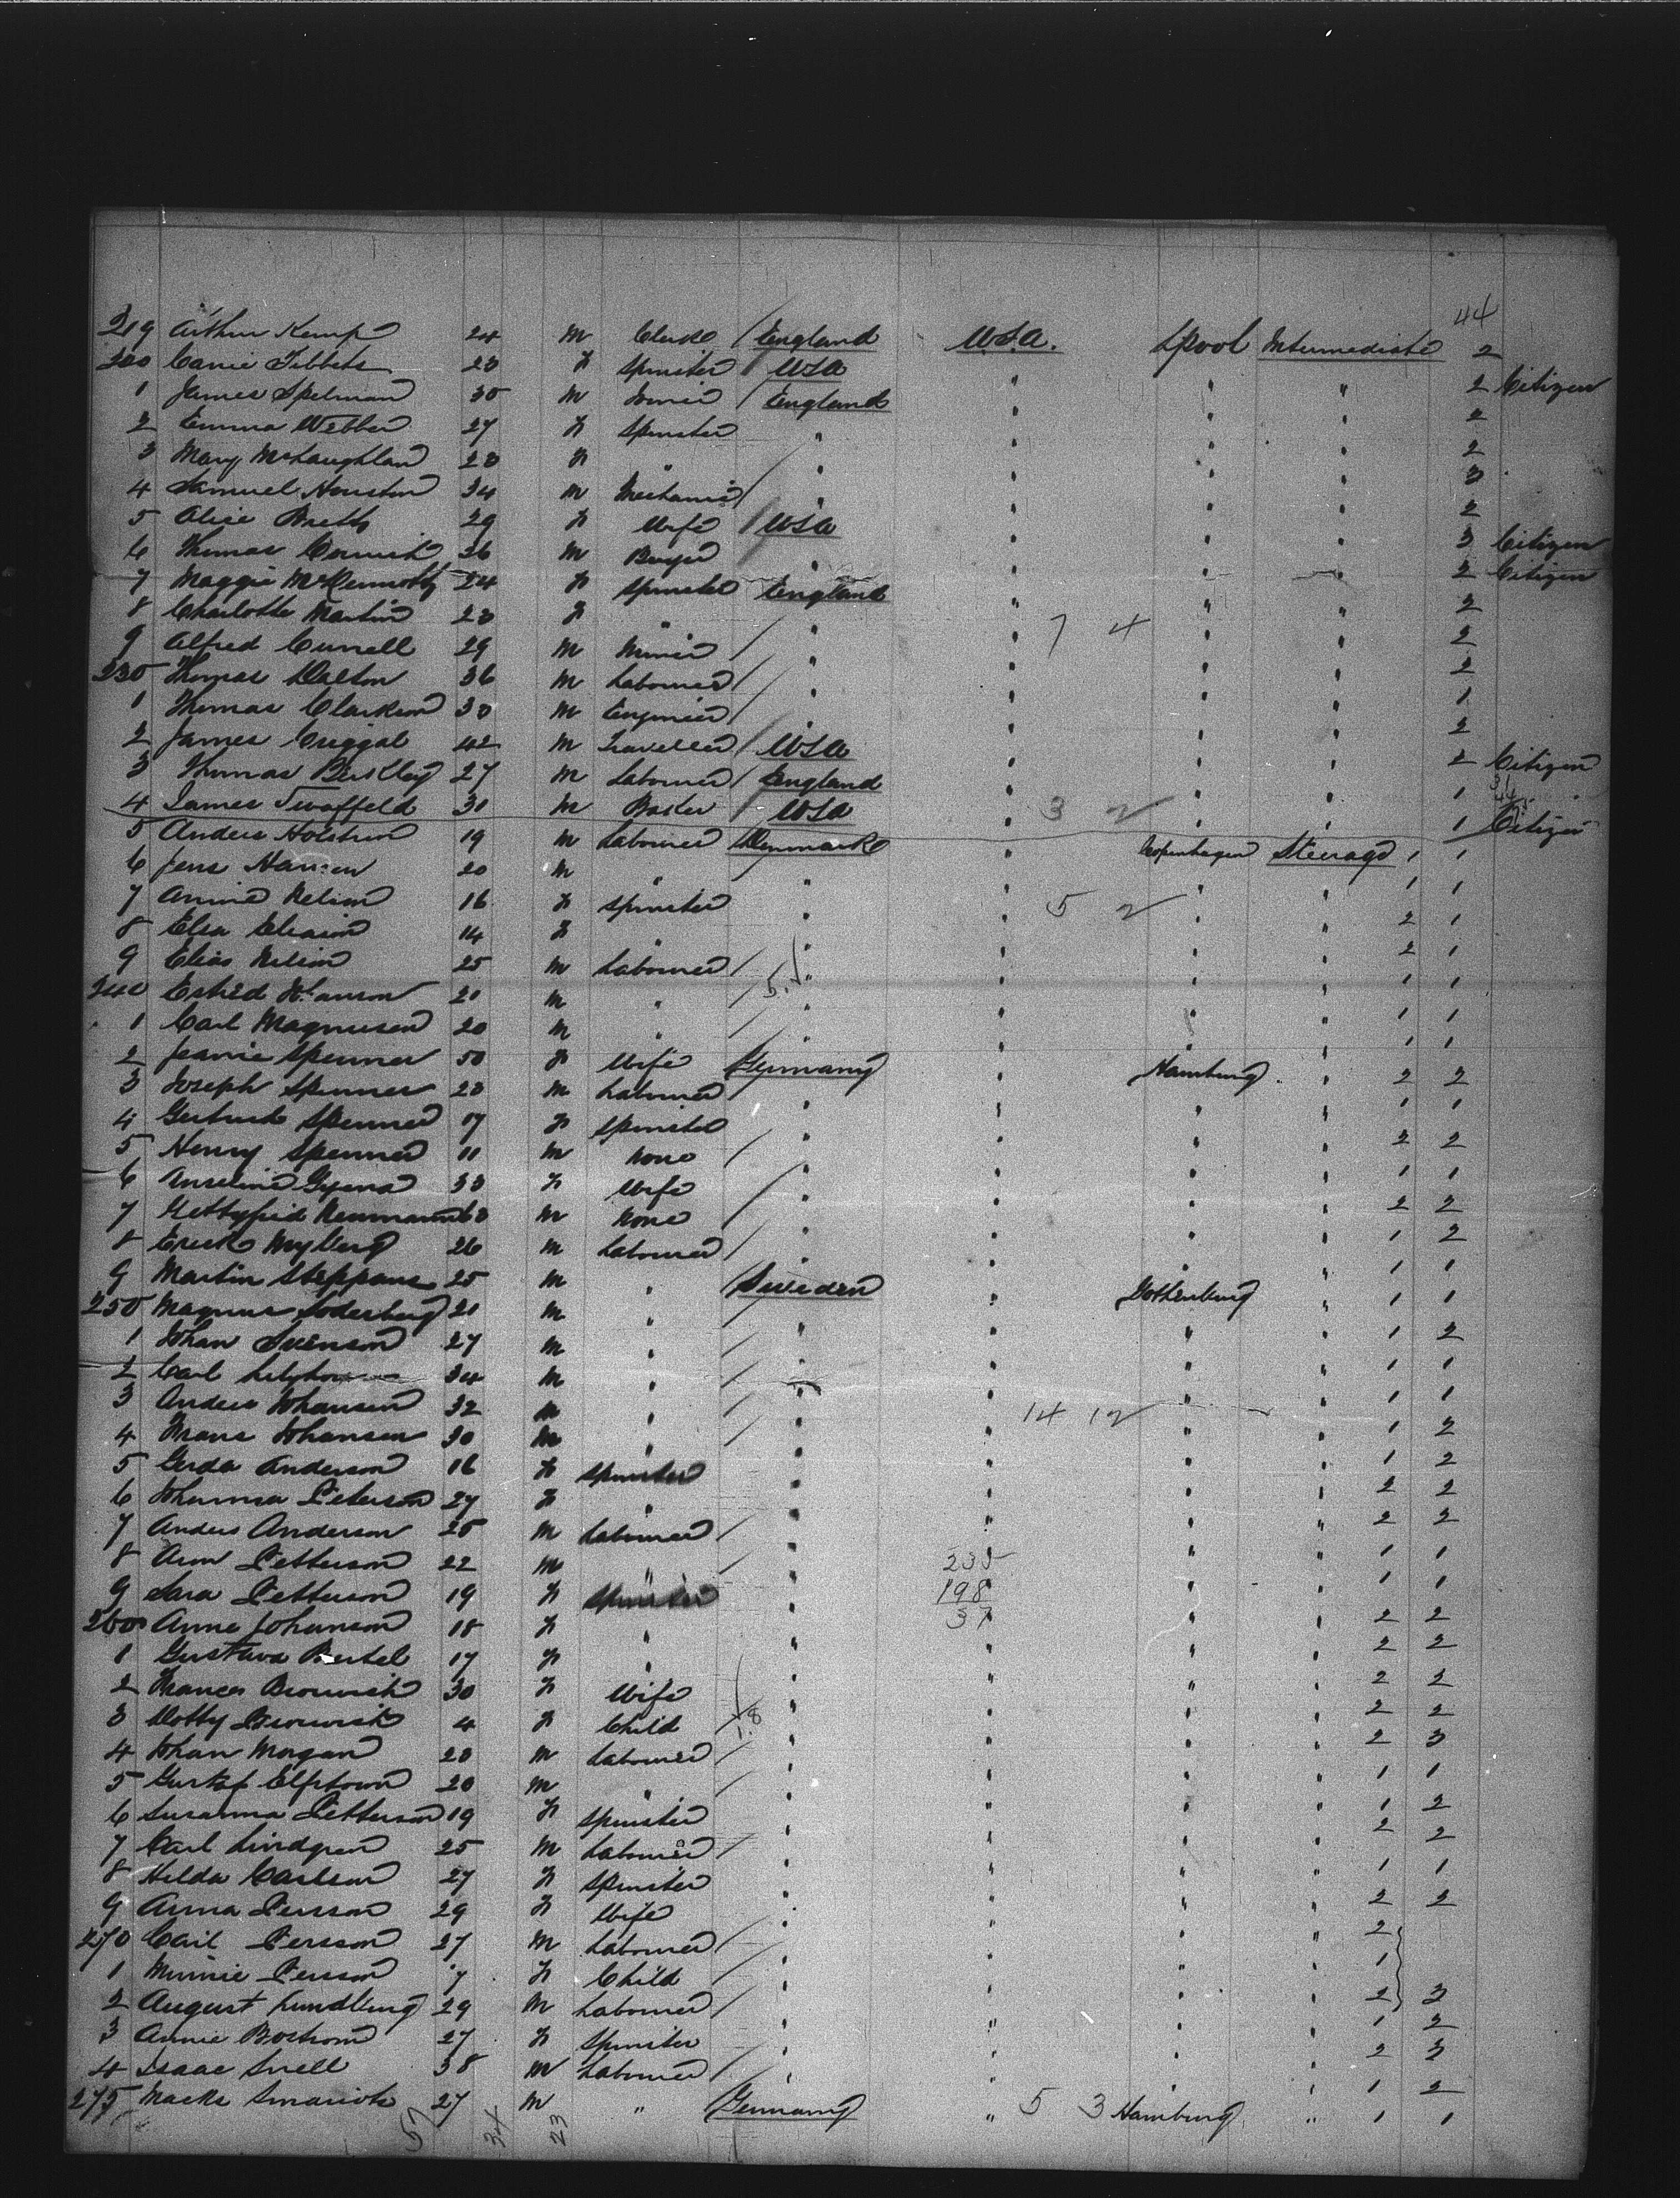 44
219 Arthur Kemp 24 M Clerk England U.S.A. Lpool Intermediate 2
220 Carrie Tibbets 23 F Spinster USA " " " 2 Citizen
1 James Spelman 30 M England " " " 2
2 Emma Webber 27 F Spinster " " " " 2
3 Mary McLaughlan 23 F " " " " " 3
4 Samuel Houston 34 M Mechanic " " " " 2
5 Alice Brett 29 F Wife USA " " " 3 Citizen
6 Thomas Cornish 36 M Buyer " " " " 2 Citizen
7 Maggie McDermott 24 F Spinster England " " " 2
8 Charlotte Martin 23 F " " " 7 4 " " 2
9 Alfred Currell 29 M Miner " " " " 2
230 Thomas Dalton 36 M Labourer " " " " 1
1 Thomas Clarkson 33 M Engineer " " " " 2
2 James 42 M Traveller USA " " " 2 Citizen
3 Thomas Birkley 27 M Labourer England " " " 1
4 James Swaffield 30 M Baker USA " 3 2 " " 1 Citizen
5 Anders Holstrom 19 M Labourer Denmark " Copenhagen Steerage 1 1
6 Jens Hansen 20 M " " " " " 1 1
7 Annie Nelson 16 F Spinster " " 5 2 " " 2 1
8 Elsa 14 F " " " " " 2 1
9 Elias Nelson 25 M Labourer " " " " 1 1
240 20 M " " " " " 1 1
1 Carl Magnusen 20 M " " " " " 1 1
2 Jeanie Spenner 50 F Wife Germany " Hamburg " 2 2
3 Joseph Spenner 23 M Labourer " " " " 1 1
4 Gertrude Spenner 17 F Spinster " " " " 2 2
5 Henry Spenner 11 M None " " " " 1 1
6 33 F Wife " " " " 2 2
7 Neumann M None " " " " 1 2
8 Erick Myberg 26 M Labourer " " " " 1 1
9 Martin Steppans 25 M " Sweden " Gothenburg " 1 1
250 Magnus Soderberg 20 M " " " " " 1 2
1 Johan Svenson 27 M " " " " " 1 1
2 Carl 34 M " " " " " 1 1
3 Anders Johansen 32 M " " " 14 12 " " 1 2
4 Frans Johansen 30 M " " " " " 1 2
5 Gerda Anderson 16 F Spinster " " " " 2 2
6 Johanna Peterson 27 F " " " " " 2 2
7 Anders Anderson 25 M Labourer " " " " 1 1
8 Aron Petterson 22 M " " 235 " " 1 1
9 Sara Petterson 19 F Spinster " 198 " " 2 2
260 Anna Johanson 18 F " " 37 " " 2 2
1 Gustava Bertel 17 F " " " " " 2 2
2 Frances Bronwick 30 F Wife " " " " 2 2
3 Dotty Bronwick 4 F Child " " " " 2 3
4 Johan Morgan 23 M Labourer " " " " 1 1
5 Gustaf Elfstrom 20 M " " " " " 1 2
6 Susanna Petterson 19 F Spinster " " " " 2 2
7 Carl Lindgren 25 M Labourer " " " " 1 1
8 Hilda Carlson 27 F Spinster " " " " 2 2
9 Anna Persson 29 F Wife " " " " 2
270 Carl Persson 27 M Labourer " " " " 1
1 Minnie Persson 7 F Child " " " " 2 3
2 August Lundberg 29 M Labourer " " " " 1 2
3 Annie Bostrom 27 F Spinster " " " " 2 2
4 Isaac Snell 38 M Labourer " " " " 1 2
275 27 M " Germany " 5 3 Hamburg " 1 1
57 34 23